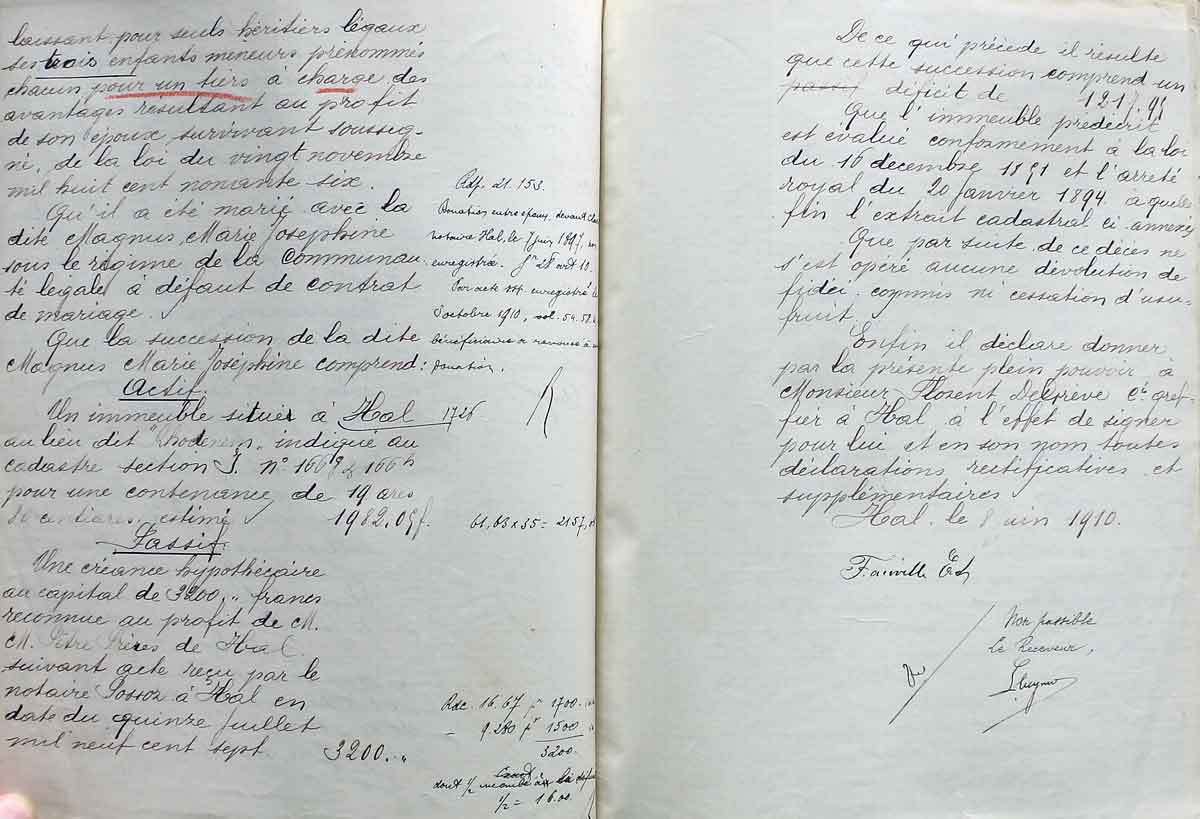 laissant pour seuls héritiers légaux
ses trois enfants mineurs prénommés
chacun pour un tiers à charge des
avantages résultant au profit
de son époux survivant soussig-
né, de la loi du vingt novembre
mil huit cent nonante six.
Qu'il a été marié avec la
dite Magnus Marie Joséphine
sous le régime de la communau-
té légale à défaut de contrat
de mariage.
Que la succession de la dite
Magnus Marie Joséphine comprend:
Actif.
Un immeuble situé à Hal
au lieu dit indiqué au
cadastre section J. n° 166g & 166h
pour une contenance de 19 ares
centiares, estimé 1982.05f.
Passif
Une créance hypothécaire
au capital de 3200 „ francs
reconnue au profit de M.
M. Frères de Hal.
suivant acte reçu par le
notaire Possoz à Hal en
date du quinze Juillet
mil neuf cent sept. 3200. „
21.153.
Donation entre époux devant
notaire Hal, le 7 juin 1897,
enregistrée.
Par acte enregistré le
octobre 1910, vol.
bénéficiaire a renoncé à
donation.
1726
61,63 x 35 = 2157,
Rdc. 16.67 pr 1700.
- 9.280 pr 1500
3200.
dont 1/2 incombe à la
1/2 = 16.00.
De ce qui précède il résulte
que cette succession comprend un
passif déficit de 1217.95
Que l'immeuble prédécrit
est évalué conformement à la loi
du 16 decembre 1891 et l'arreté
royal du 20 Janvier 1894 à quelle
fin l'extrait cadastral ci-annexé
Que par suite de ce décès ne
s'est opéré aucune dévolution de
fidei-commis ni cessation d'usu-
fruit.
Enfin il déclare donner
par la présente plein pouvoir à
Monsieur Florent Delprève Cs gref-
fier à Hal à l'effet de signer
pour lui et en son nom toutes
déclarations rectificatives et
supplémentaires
Hal, le 8 juin 1910.
Non passible
Le Receveur,